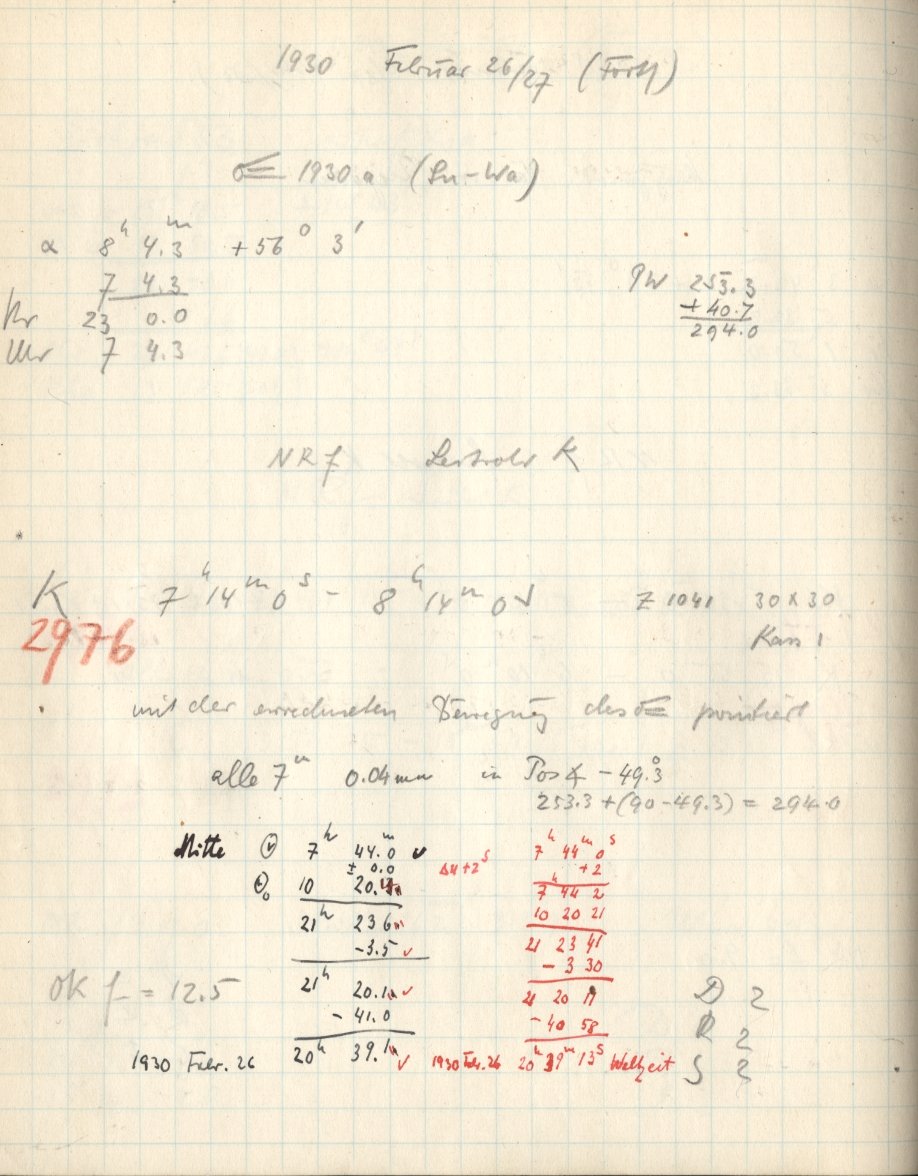 1930 Februar 26/27 (Forts)
☄ 1930 a (
α 8h 4.3m +56° 3'
7 4.3
23 0.0
Uhr 7 4.3
PW 253.3
+40.7
294.0
NRf K
K 7h 14m 0s - 8h 14m 0s Z 1041 30 x 30
2976 Kass 1
mit der errechneten Bewegung des ☄ pointiert
alle 7m 0.04 mm in Pos ∡ -49.3°
253.3 + (90 - 49.3) = 294.0
Mitte 7h 44.0m ✓
± 0.0
10 20.
21h 23.6 ✓
-3.5 ✓
21h 20.1 ✓
- 41.0
1930 Febr. 26 20h 39.1 ✓
ΔU + 2s
7h 44m 0s
+2
7h 44 2
10 20 21
21 23 41
- 3 30
21 20 11
-40 58
1930 Febr. 26 20h 39m 13s Weltzeit
OK f = 12.5
D 2
R 2
S 2